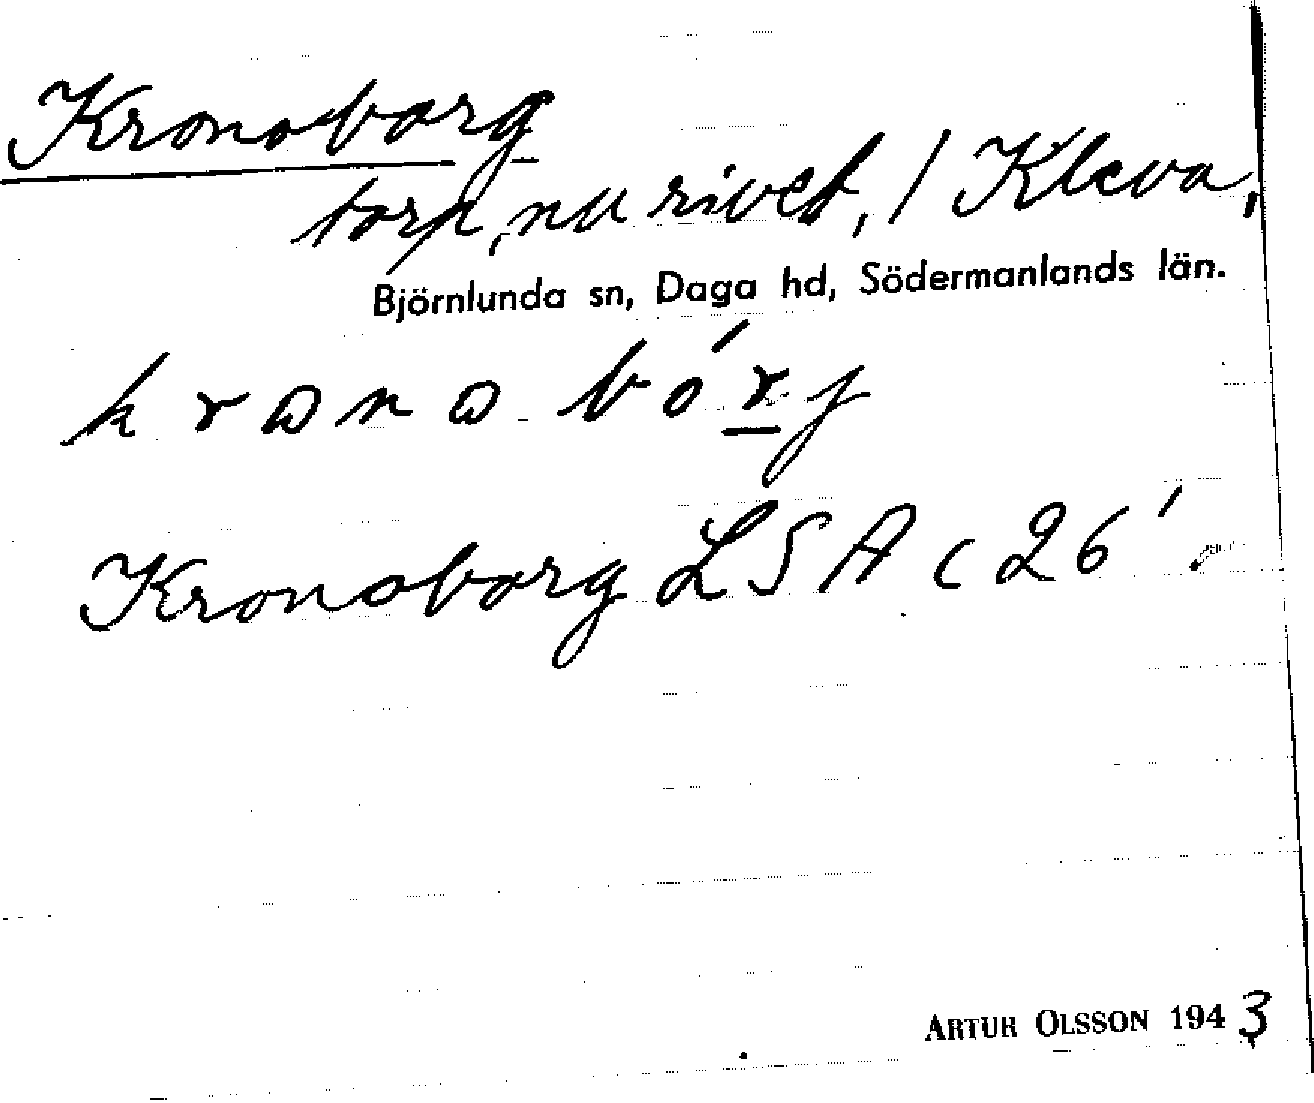 Kronoborg
torp, nu rivet, / Kleva,
Björnlunda sn, Daga hd, Södermanlands län.
krɷnɷbórj
Kronoborg LSA c 26'
ARTUR OLSSON 1943